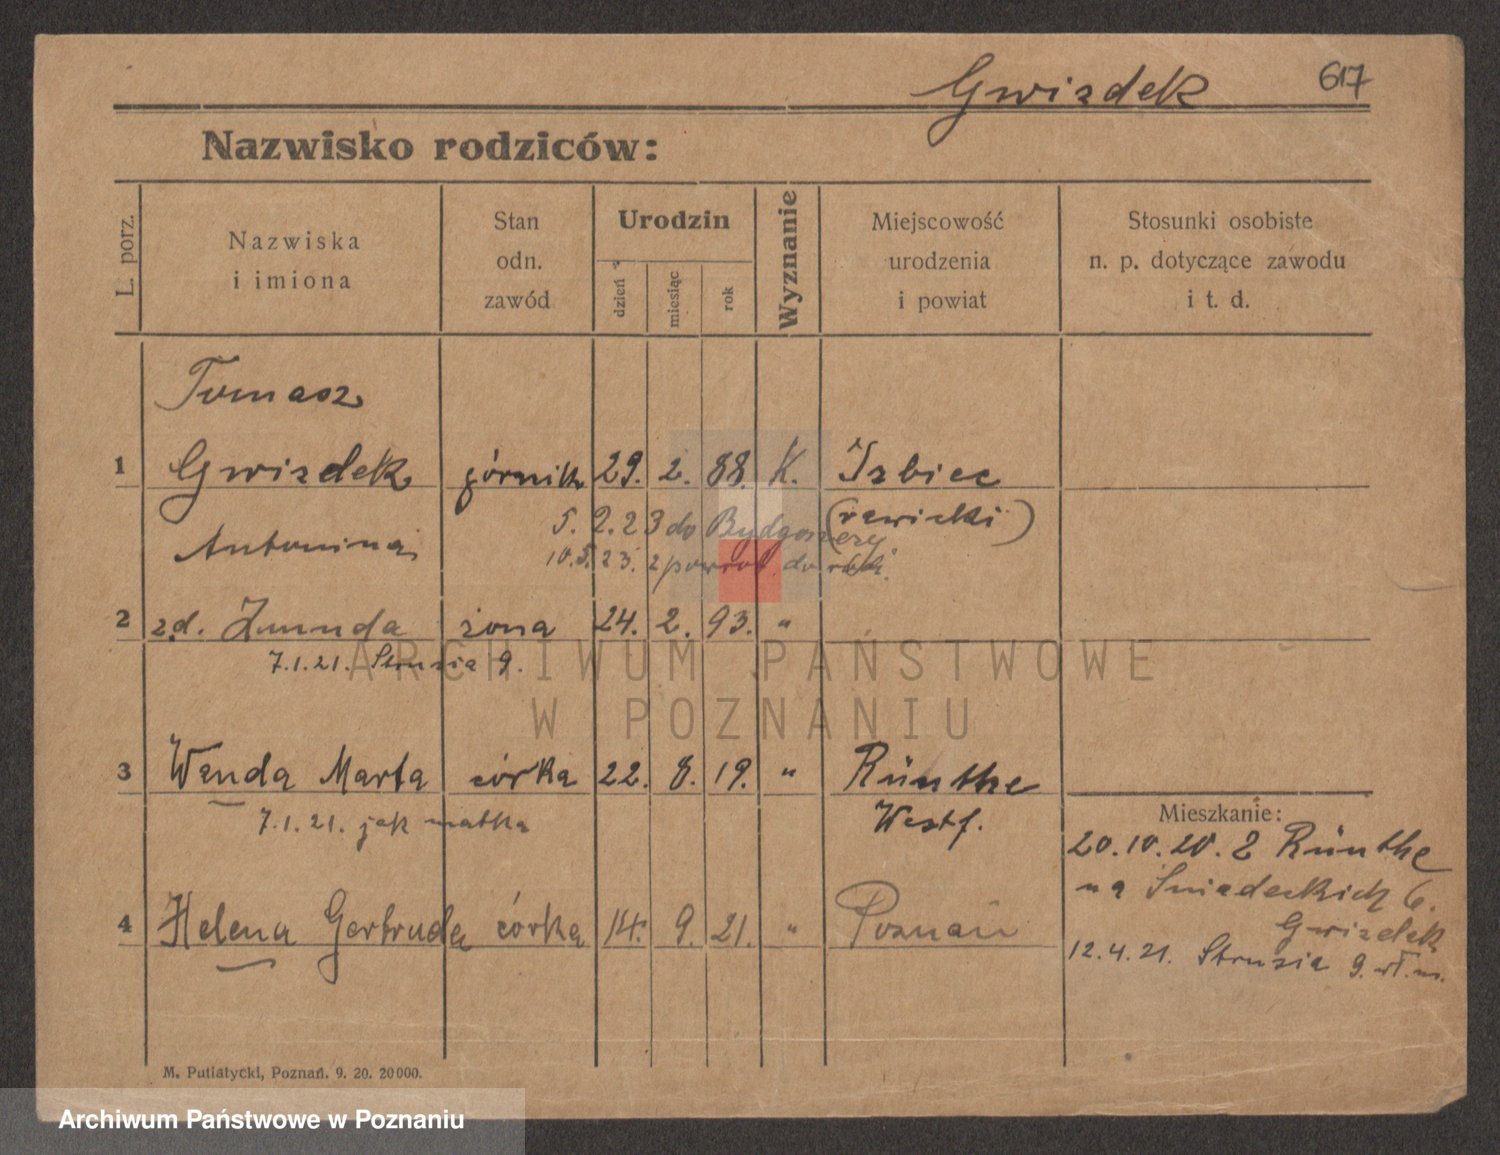 Gwizdek 617
Nazwisko rodziców:
L. porz.
Nazwiska
i imiona
Stan
odn.
zawód
Urodzin
dzień
miesiąc
rok
Wyznanie
Miejscowość
urodzenia
i powiat
Stosunki osobiste
n. p. dotyczące zawodu
i t. d.
Tomasz
1 Gwizdek górnik 29. 2. 88. K. Izbice
(rawicki)
5. 2. 23 do Bydgoszczy
Antonina
10.5.23. z powrot. do
2 z d. Żmuda żona 24. 2. 93. "
7.1.21. Strusia 9.
ARCHIWUM PAŃSTWOWE
W POZNANIU
3 Wanda Marta córka 22. 8. 19. " Rünthe
7.1.21. jak matka
Westf.
Mieszkanie:
20.10.20. z Rünthe
na Śniadeckich 6.
Gwizdek
4 Helena Gertruda córka 14. 9. 21. " Poznań
12.4.21. Strusia 9. wł. m.
M. Putiatycki, Poznań. 9. 20. 20000.
Archiwum Państwowe w Poznaniu